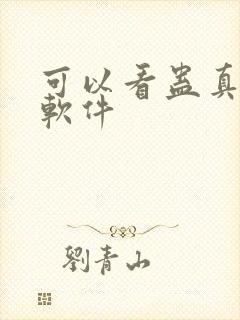 可以看蛊真
軟件
劉青山